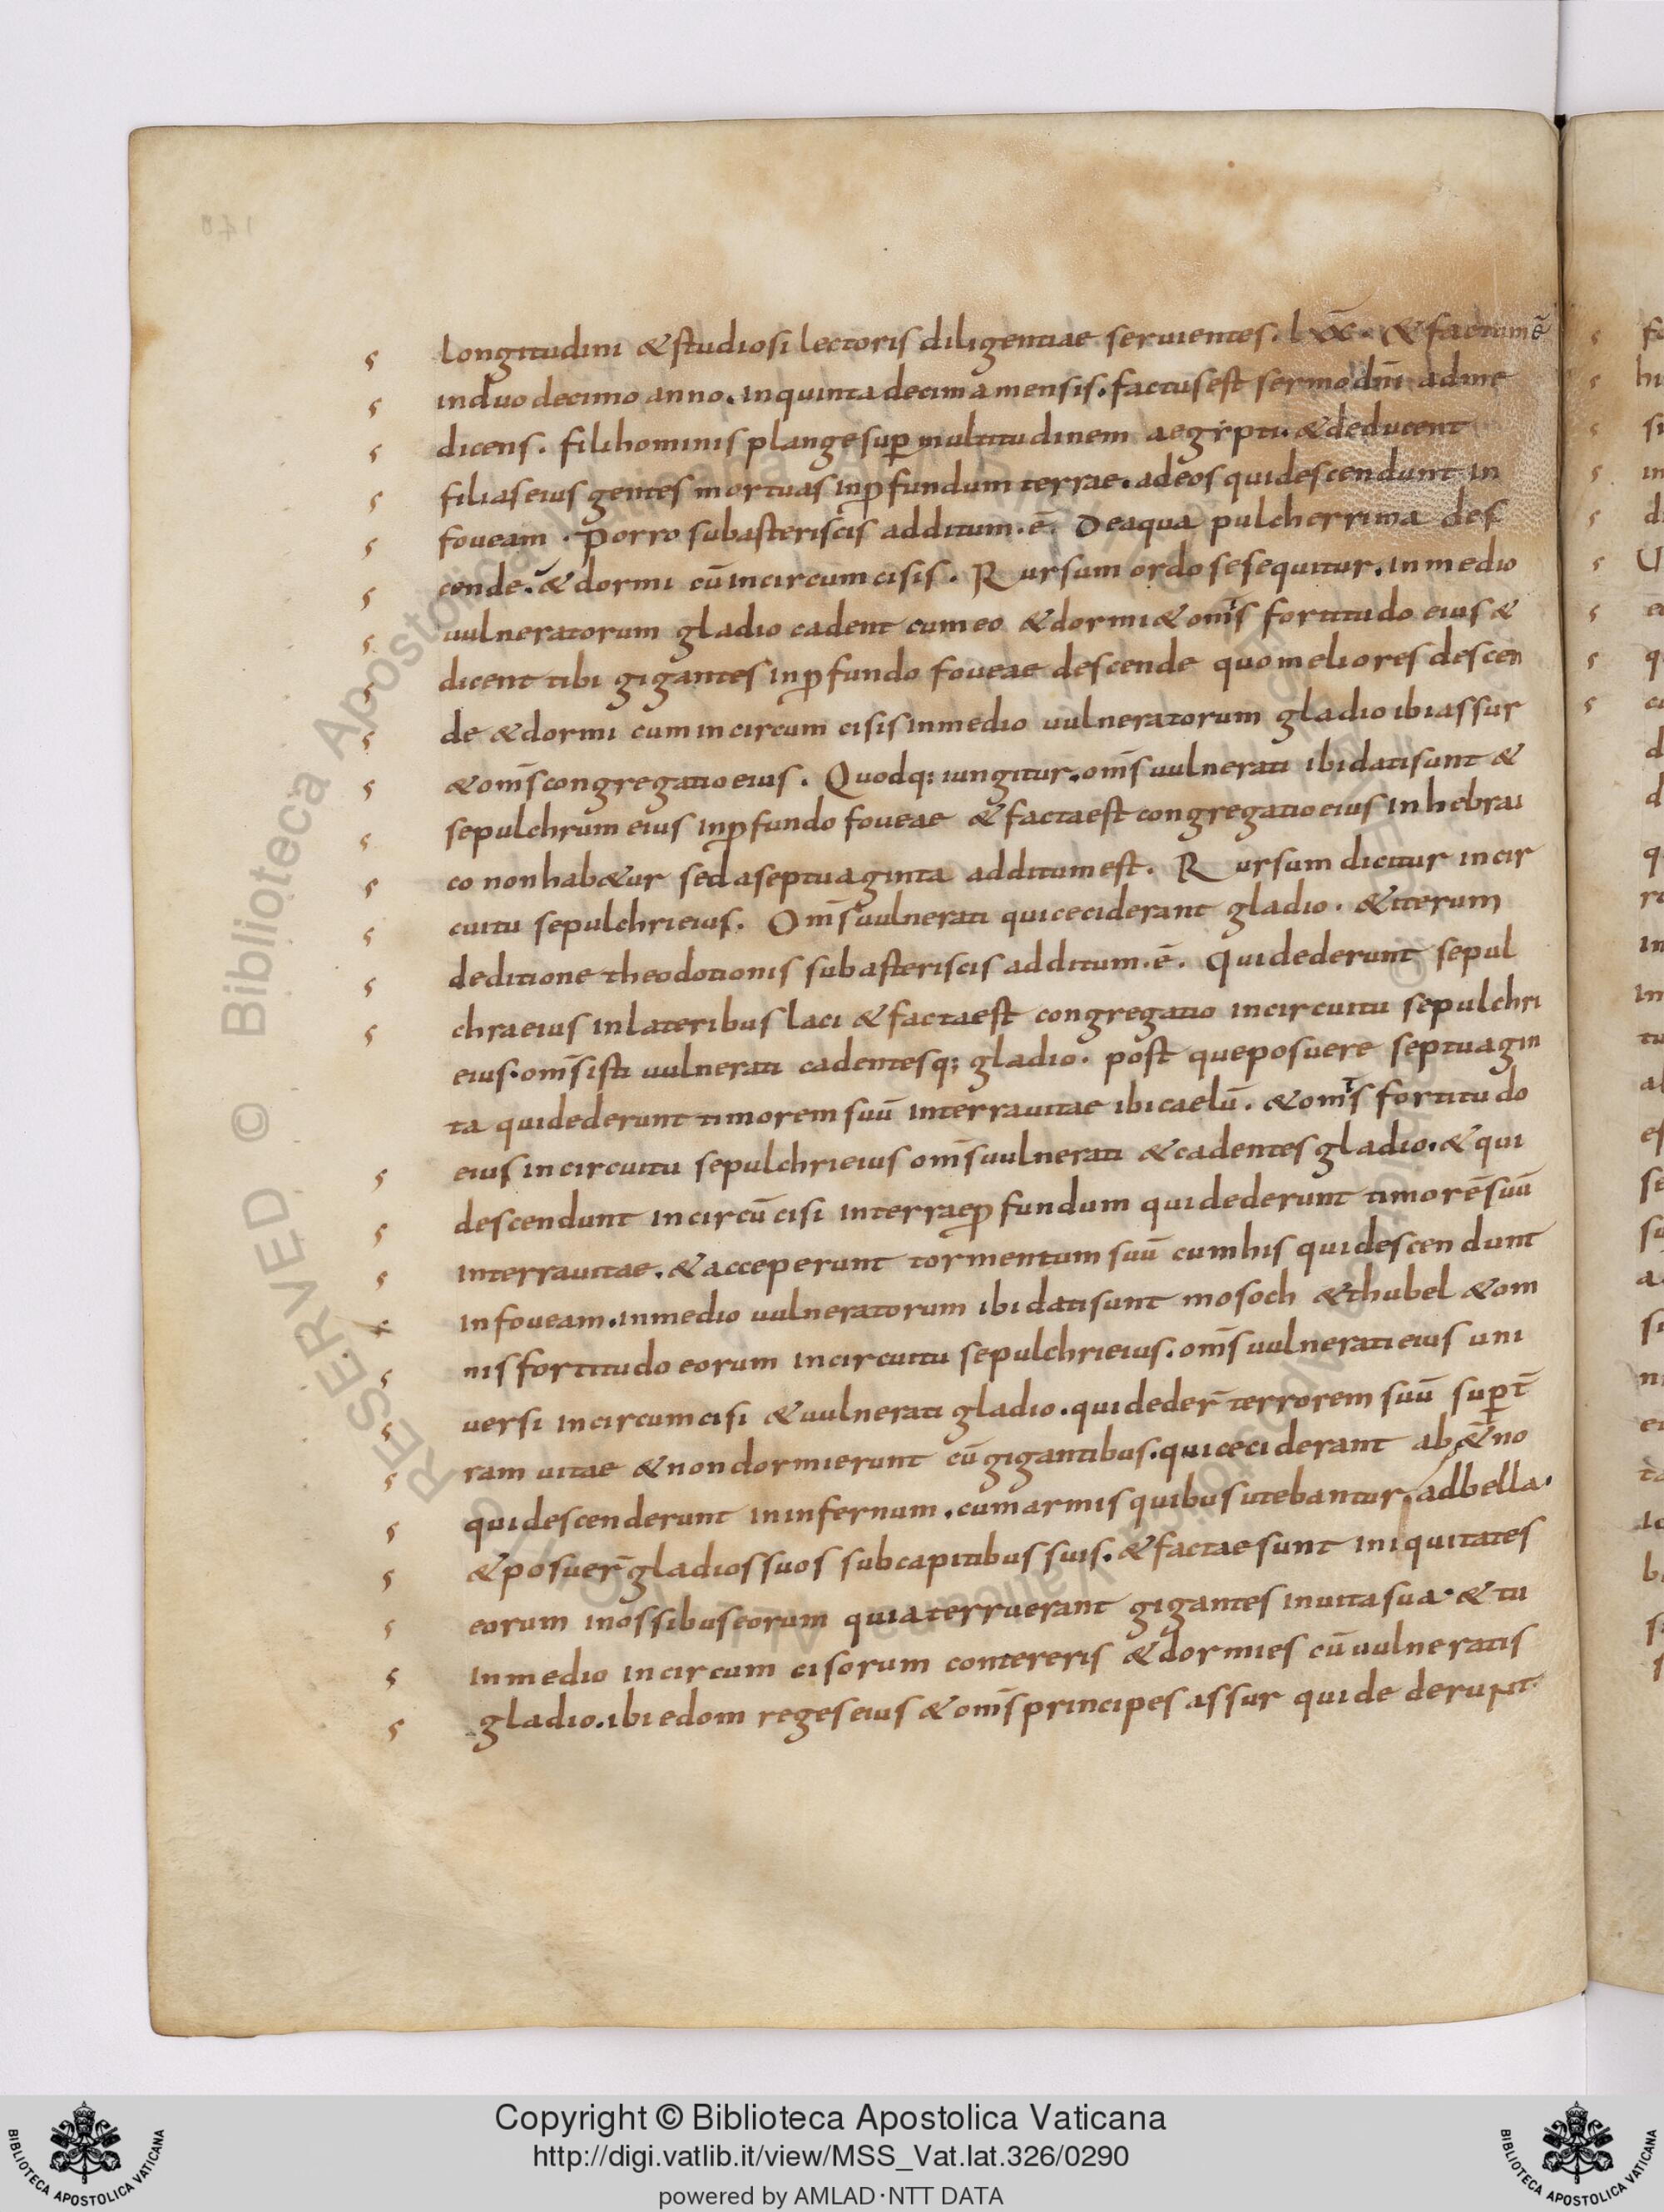 longitudini & studiosi lectoris diligentiae seruientes. lxx. & factum ē
in duo decimo anno. in quinta decima mensis. factus est sermo dñi ad me
dicens. fili hominis plange sup multitudinem aegypti. & deducent
filias eius gentes mortuas in pfundum terrae. ad eos qui descendunt in
foueam. Porro sub asteriscis additum. ē. De aqua pulcherrima des
cende. & dormi cū incircumcisis. Rursum ordo se sequitur. in medio
uulneratorum gladio cadent cum eo & dormi & omīs fortitudo eius &
dicent tibi gigantes in pfundo foueae descende quo meliores descen
de & dormi cum incircum cisis in medio uulneratorum gladio ibi assur
& om̄s congregatio eius. Quodq; iungitur. om̄s uulnerati ibi dati sunt &
sepulchrum eius in pfundo foueae & facta est congregatio eius in hebrai
co non hab&ur sed a septuaginta additum est. Rursum dicitur in cir
cuitu sepulchri eius. Om̄s uulnerati qui ceciderant gladio. & iterum
de ditione theodotionis sub asteriscis additum. ē. Qui dederunt sepul
chra eius in lateribus laci & facta est congregatio in circuitu sepulchri
eius. om̄s isti uulnerati cadentesq; gladio. post que posuere septuagin
ta qui dederunt timorem suū in terra uitae ibi caelū. & omīs fortitudo
eius in circuitu sepulchri eius om̄s uulnerati & cadentes gladio. & qui
descendunt incircū cisi in terrae pfundum qui dederunt timorē suū
in terra uitae. & acceperunt tormentum suū cum his qui descendunt
in foueam. in medio uulneratorum ibi dati sunt mosoch & thubel & om
nis fortitudo eorum in circuitu sepulchri eius. om̄s uulnerati eius uni
uersi incircumcisi & uulnerati gladio. qui dedeř terrorem suū sup t̄
ram uitae & non dormierunt cū gigantibus. qui ceciderant ab &̄no
qui descenderunt in infernum. cum armis quibus utebantur. ad bella.
& posueř gladios suos sub capitibus suis. & factae sunt iniquitates
eorum in ossibus eorum quia terruerant gigantes in uita sua. & tu
in medio incircum cisorum contereris & dormies cū uulneratis
gladio. ibi edom reges eius & om̄s principes assur qui de derunt
Copyright © Biblioteca Apostolica Vaticana
http://digi.vatlib.it/view/MSS_Vat.lat.326/0290
powered by AMLAD·NTT DATA